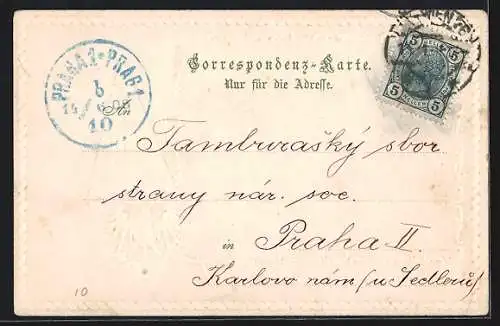 WIEN
5 5
5 5
PRAHA 1 • PRAG 1
b
10
Correspondenz-Karte.
Nur für die Adresse.
An
Tamburašký sbor
strany nár. soc.
in Praha II.
Karlovo nám (u Sedlerů)
10